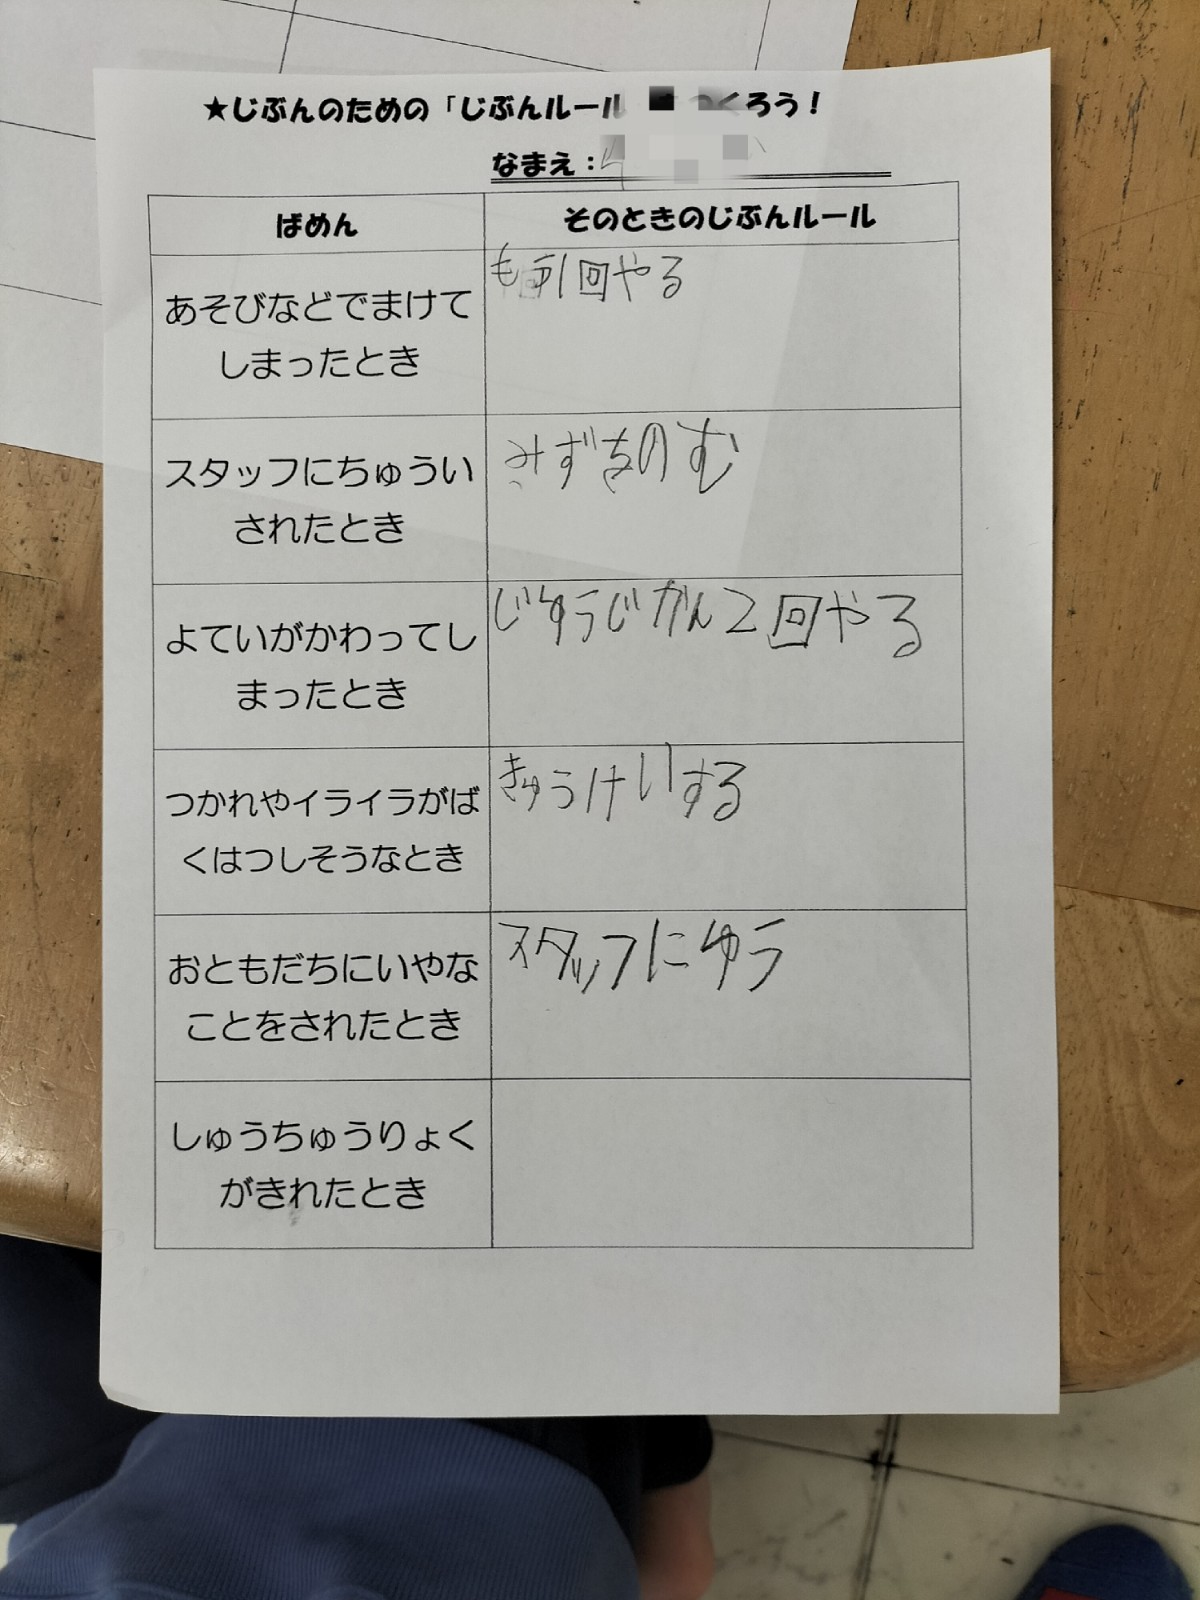 ★じぶんのための「じぶんルール くろう！
なまえ：
ばめん
そのときのじぶんルール
あそびなどでまけて
しまったとき
もう1回やる
スタッフにちゅうい
されたとき
みずをのむ
よていがかわってし
まったとき
じゆうじかん2回やる
つかれやイライラがば
くはつしそうなとき
きゅうけいする
おともだちにいやな
ことをされたとき
スタッフにゆう
しゅうちゅうりょく
がきれたとき